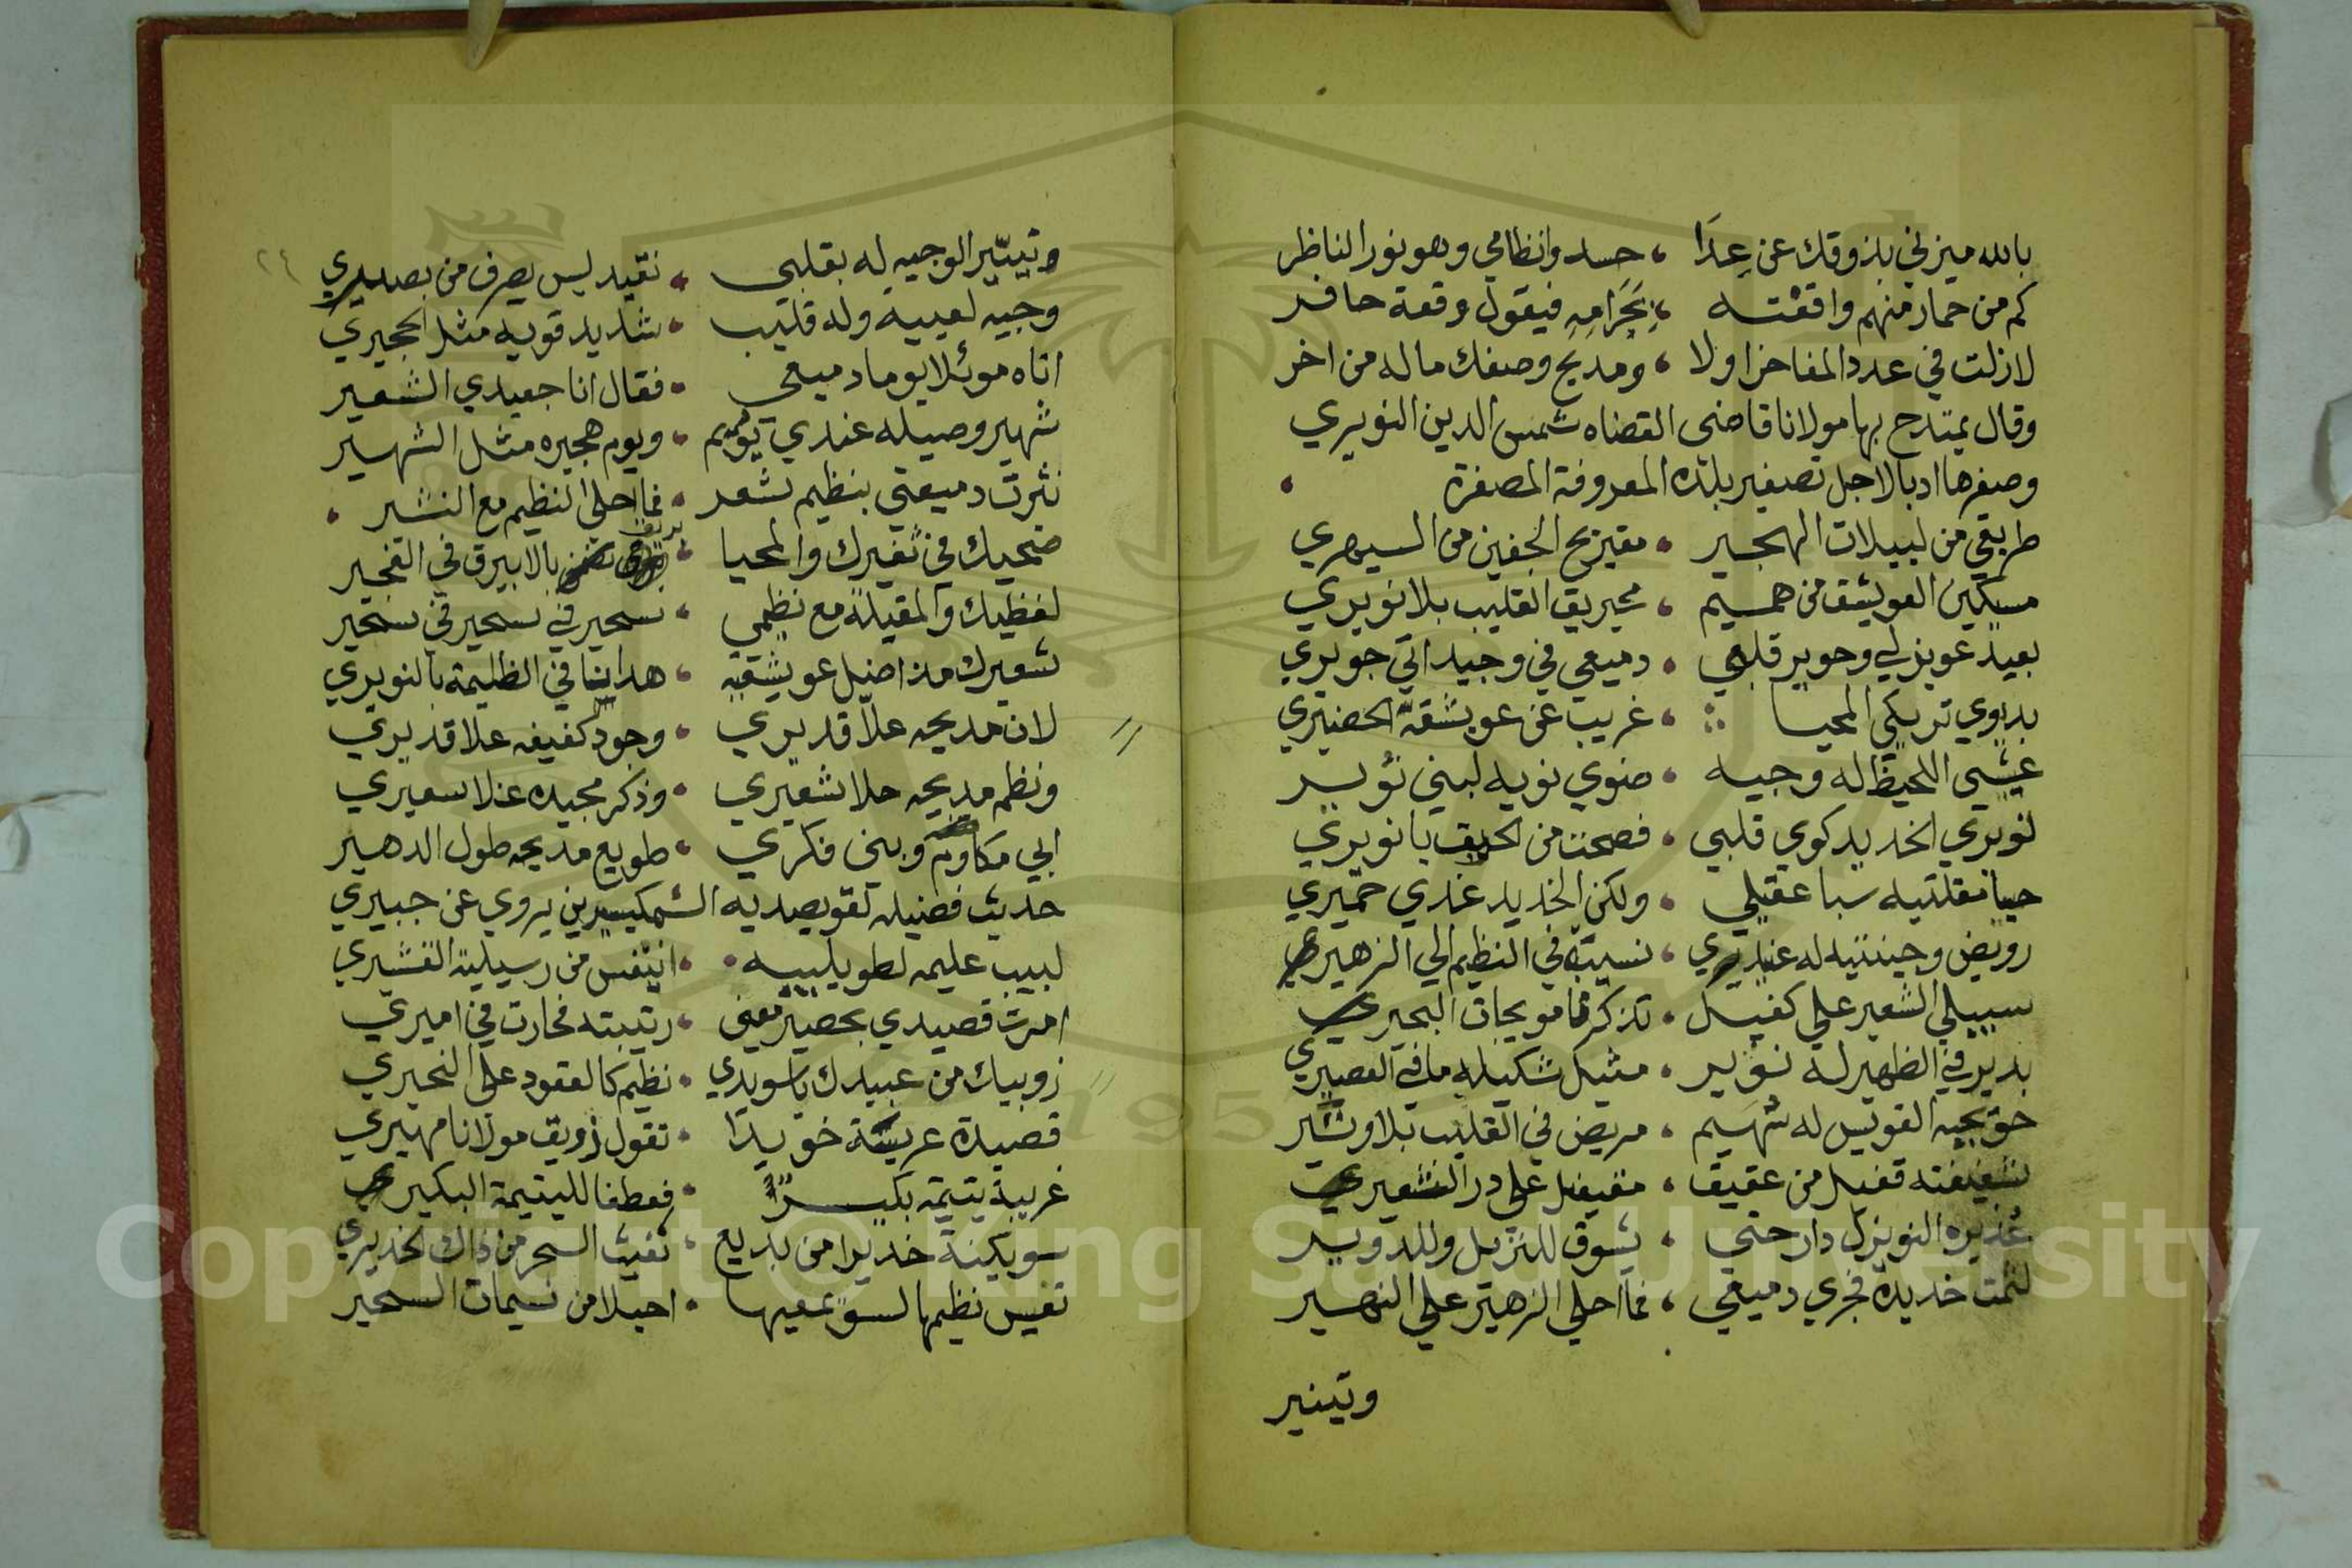 بالله ميزني بذوقك عن عِدَا ، حسدوا نظامي وهو نور الناظر
كم من حمار منهم واقفته ، بحرامه فيقول وقعة حافر
لازلت في عدد المفاخر اولا ، ومديح وصفك ماله من اخر
وقال يمتدح بها مولانا قاضى القضاه شمس الدين النويري
وصغرها ادبا لاجل تصغير بلده المعروفة المصغرة
طريقي من لييلات الهجير ، مقيريح الجفين من السهيري
مسكين العويشق من هميم ، محيريق القليب بلا نويري
بعيد عويذلي وحوير قلبي ، دميعي في وجيداتي جويري
بديوي تريكي المحيا ، غريب عن عويشقه الحضيري
عيشي اللحيظ له وجيه ، ضوي نويه لبني نوير
نويري الخديد كوي قلبي ، فصحت من الحريق يا نويري
حيا مقلتيه سبا عقيلي ، ولكن الخديد غدي حميري
رويض وجينتيه له غديري ، نسيبه في النظيم الي الزهيري
سبيلي الشعير علي كفيل ، تذكرنا مويجات البحيري
بدير في الظهير له نوير ، مثيل شكيله ما في العصيري
حويجبه القويس له سهيم ، مريض في القليب بلا وتير
شفيفته قفيل من عقيق ، مقيفل على در الثغيري
عذيره النويزل دار حتي ، يشوق للنزيل وللدوير
لثمت خديده فجري دميعي ، فما احلي الزهير علي النهير
وتينير
٢٤
وتينير الوجيه له بقلبي ، نقيد ليس يصرف من بصيري
وجيه لعيبه وله قليب ، شديد قويه مثل الحجيري
اتاه موئلا يوما دميعي ، فقال انا جعيدي الشعير
شهير وصيله عندي يويم ، ويوم هجيره مثل الشهير
نثرت دميعتي بنظيم شعر ، فما احلى النظيم مع النثير
ضحيك في ثغيرك والمحيا ، بالابيرق في الفجير
لفظيك والمقيلة مع نظيمي ، سحير في سحير في سحير
شعيرك مذ اضل عويشقيه ، هدانا في الظليمة بالنويري
لان مديحه علا قديري ، وجود كفيفه علا قديري
ونظم مديحه حلا شعيري ، وذكر مجيده غلا سعيري
ابي مكارم وبني فكري ، طويع مديحه طول الدهير
حديث فضيله لقويصديه الشميكيرين يروي عن جبيري
لبيب عليمه لطويلبيه ، انيفس من رسيلية القشيري
امرت قصيدي بحصير معنى ، رتيبته فحارت في اميري
زويبك من عبيدك يا سويدي ، نظيم كالعقود على النحيري
قصيدة عريشة خويدا ، تقول ذويق مولانا مهيري
غريبة يتيمة بكير ، فعطفا لليتيمة البكيري
سويكنة خديرا من بديع ، نفيث السحر من ذاك الخديري
نفيس نظيمها لسويمعيها ، احيلا من نسيمات السحير